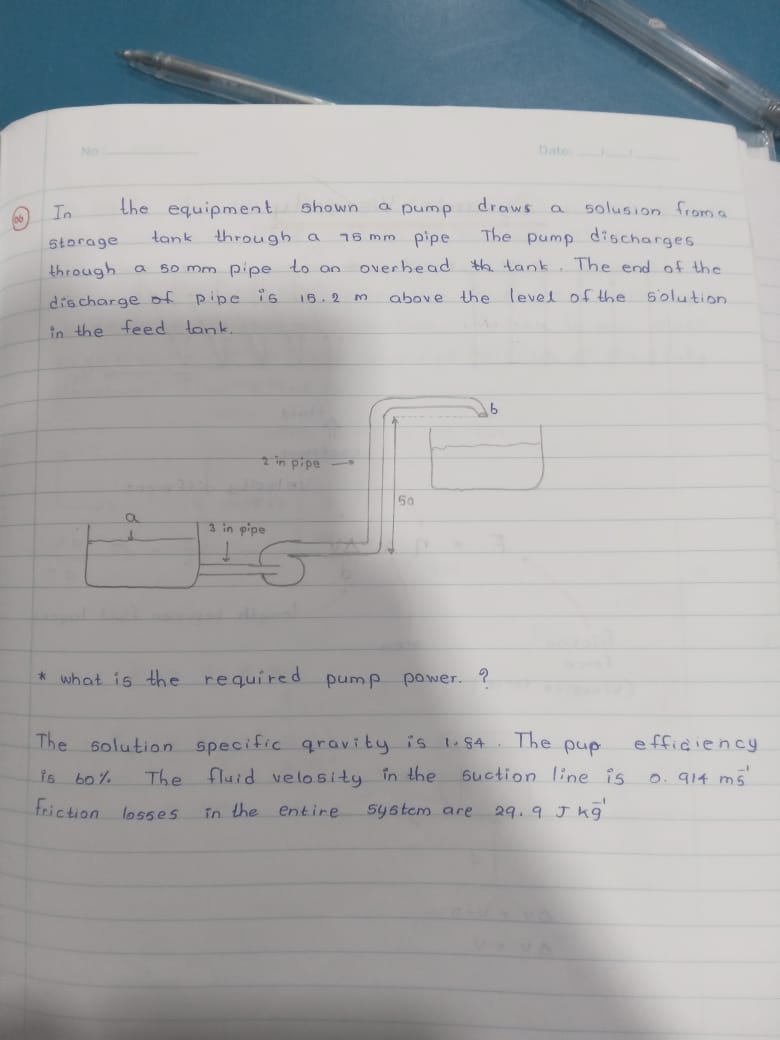 No:
Date: / /
06 In the equipment shown a pump draws a solusion from a
storage tank through a 75 mm pipe The pump discharges
through a 50 mm pipe to an overhead tank. The end of the
discharge of pipe is 15.2 m above the level of the solution
in the feed tank.
b
2 in pipe →
50
a
3 in pipe
* what is the required pump power. ?
The solution specific gravity is 1.84. The pup efficiency
is 60% The fluid velosity in the suction line is 0.914 ms⁻¹
friction losses in the entire system are 29.9 J kg⁻¹